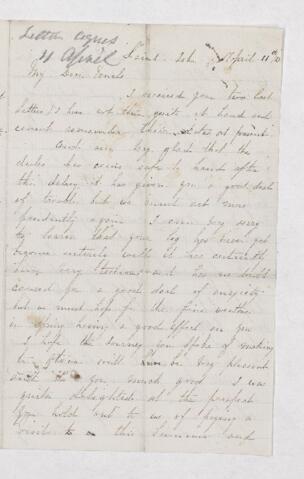 Letter
11 April
Saint John April 11th
My Dear
I received your two last
letters I have not them quite at hand and
cannot remember their dates at present
am very glad that the
has come safe to hand after
this delay it has given you a good deal
of trouble but we must act more
prudently again I am very sorry
to learn that your leg has been yet
entirely well it has certainly
been very and has no doubt
caused you a good deal of anxiety
but we must hope for the fine weather
in Spring having a good effect on you
I hope the Journey you spoke of making
to will be very pleasant
and do you much good I was
quite delighted at the prospect
you hold out to us of paying a
visit to this Summer and